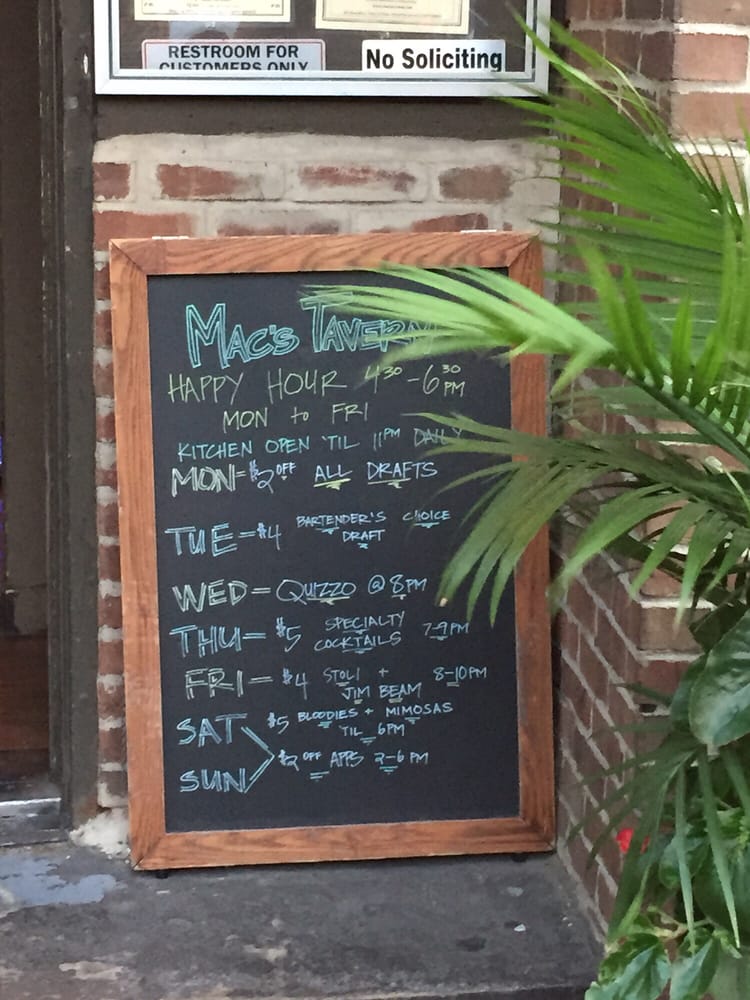 RESTROOM FOR
CUSTOMERS ONLY
No Soliciting
MAC'S TAVERN
HAPPY HOUR 4³⁰-6³⁰ PM
MON to FRI
KITCHEN OPEN 'TIL 11PM DAILY
MON=$2 OFF ALL DRAFTS
TUE=$4 BARTENDER'S CHOICE
DRAFT
WED=QUIZZO @ 8PM
THU=$5 SPECIALTY
COCKTAILS 7-9PM
FRI=$4 STOLI + 8-10PM
JIM BEAM
SAT $5 BLOODIES + MIMOSAS
TIL 6PM
SUN $2 OFF APPS 2-6 PM